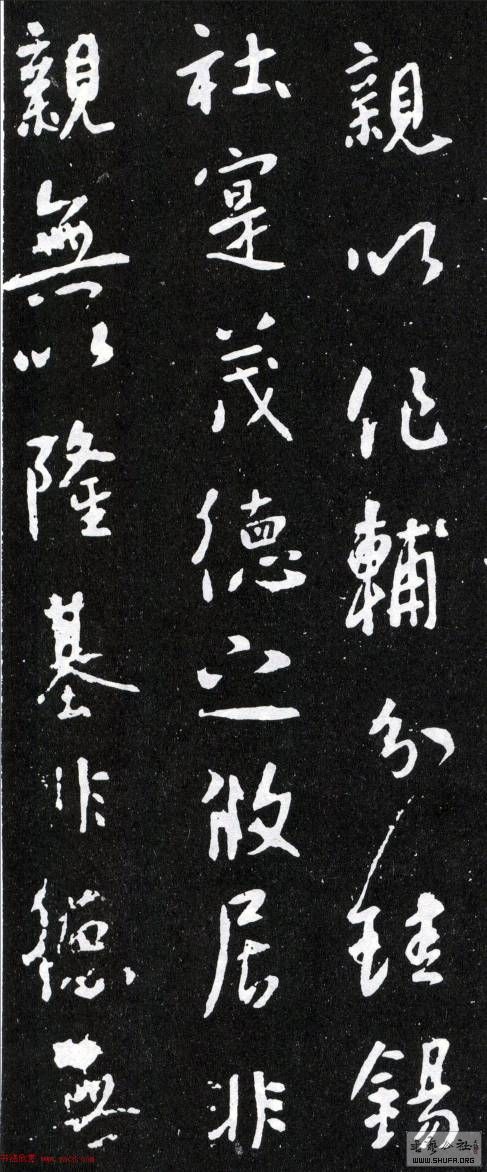 親以作輔分珪錫
社寔茂德之攸居非
親無以隆基非德無
WWW.SHUFA.ORG